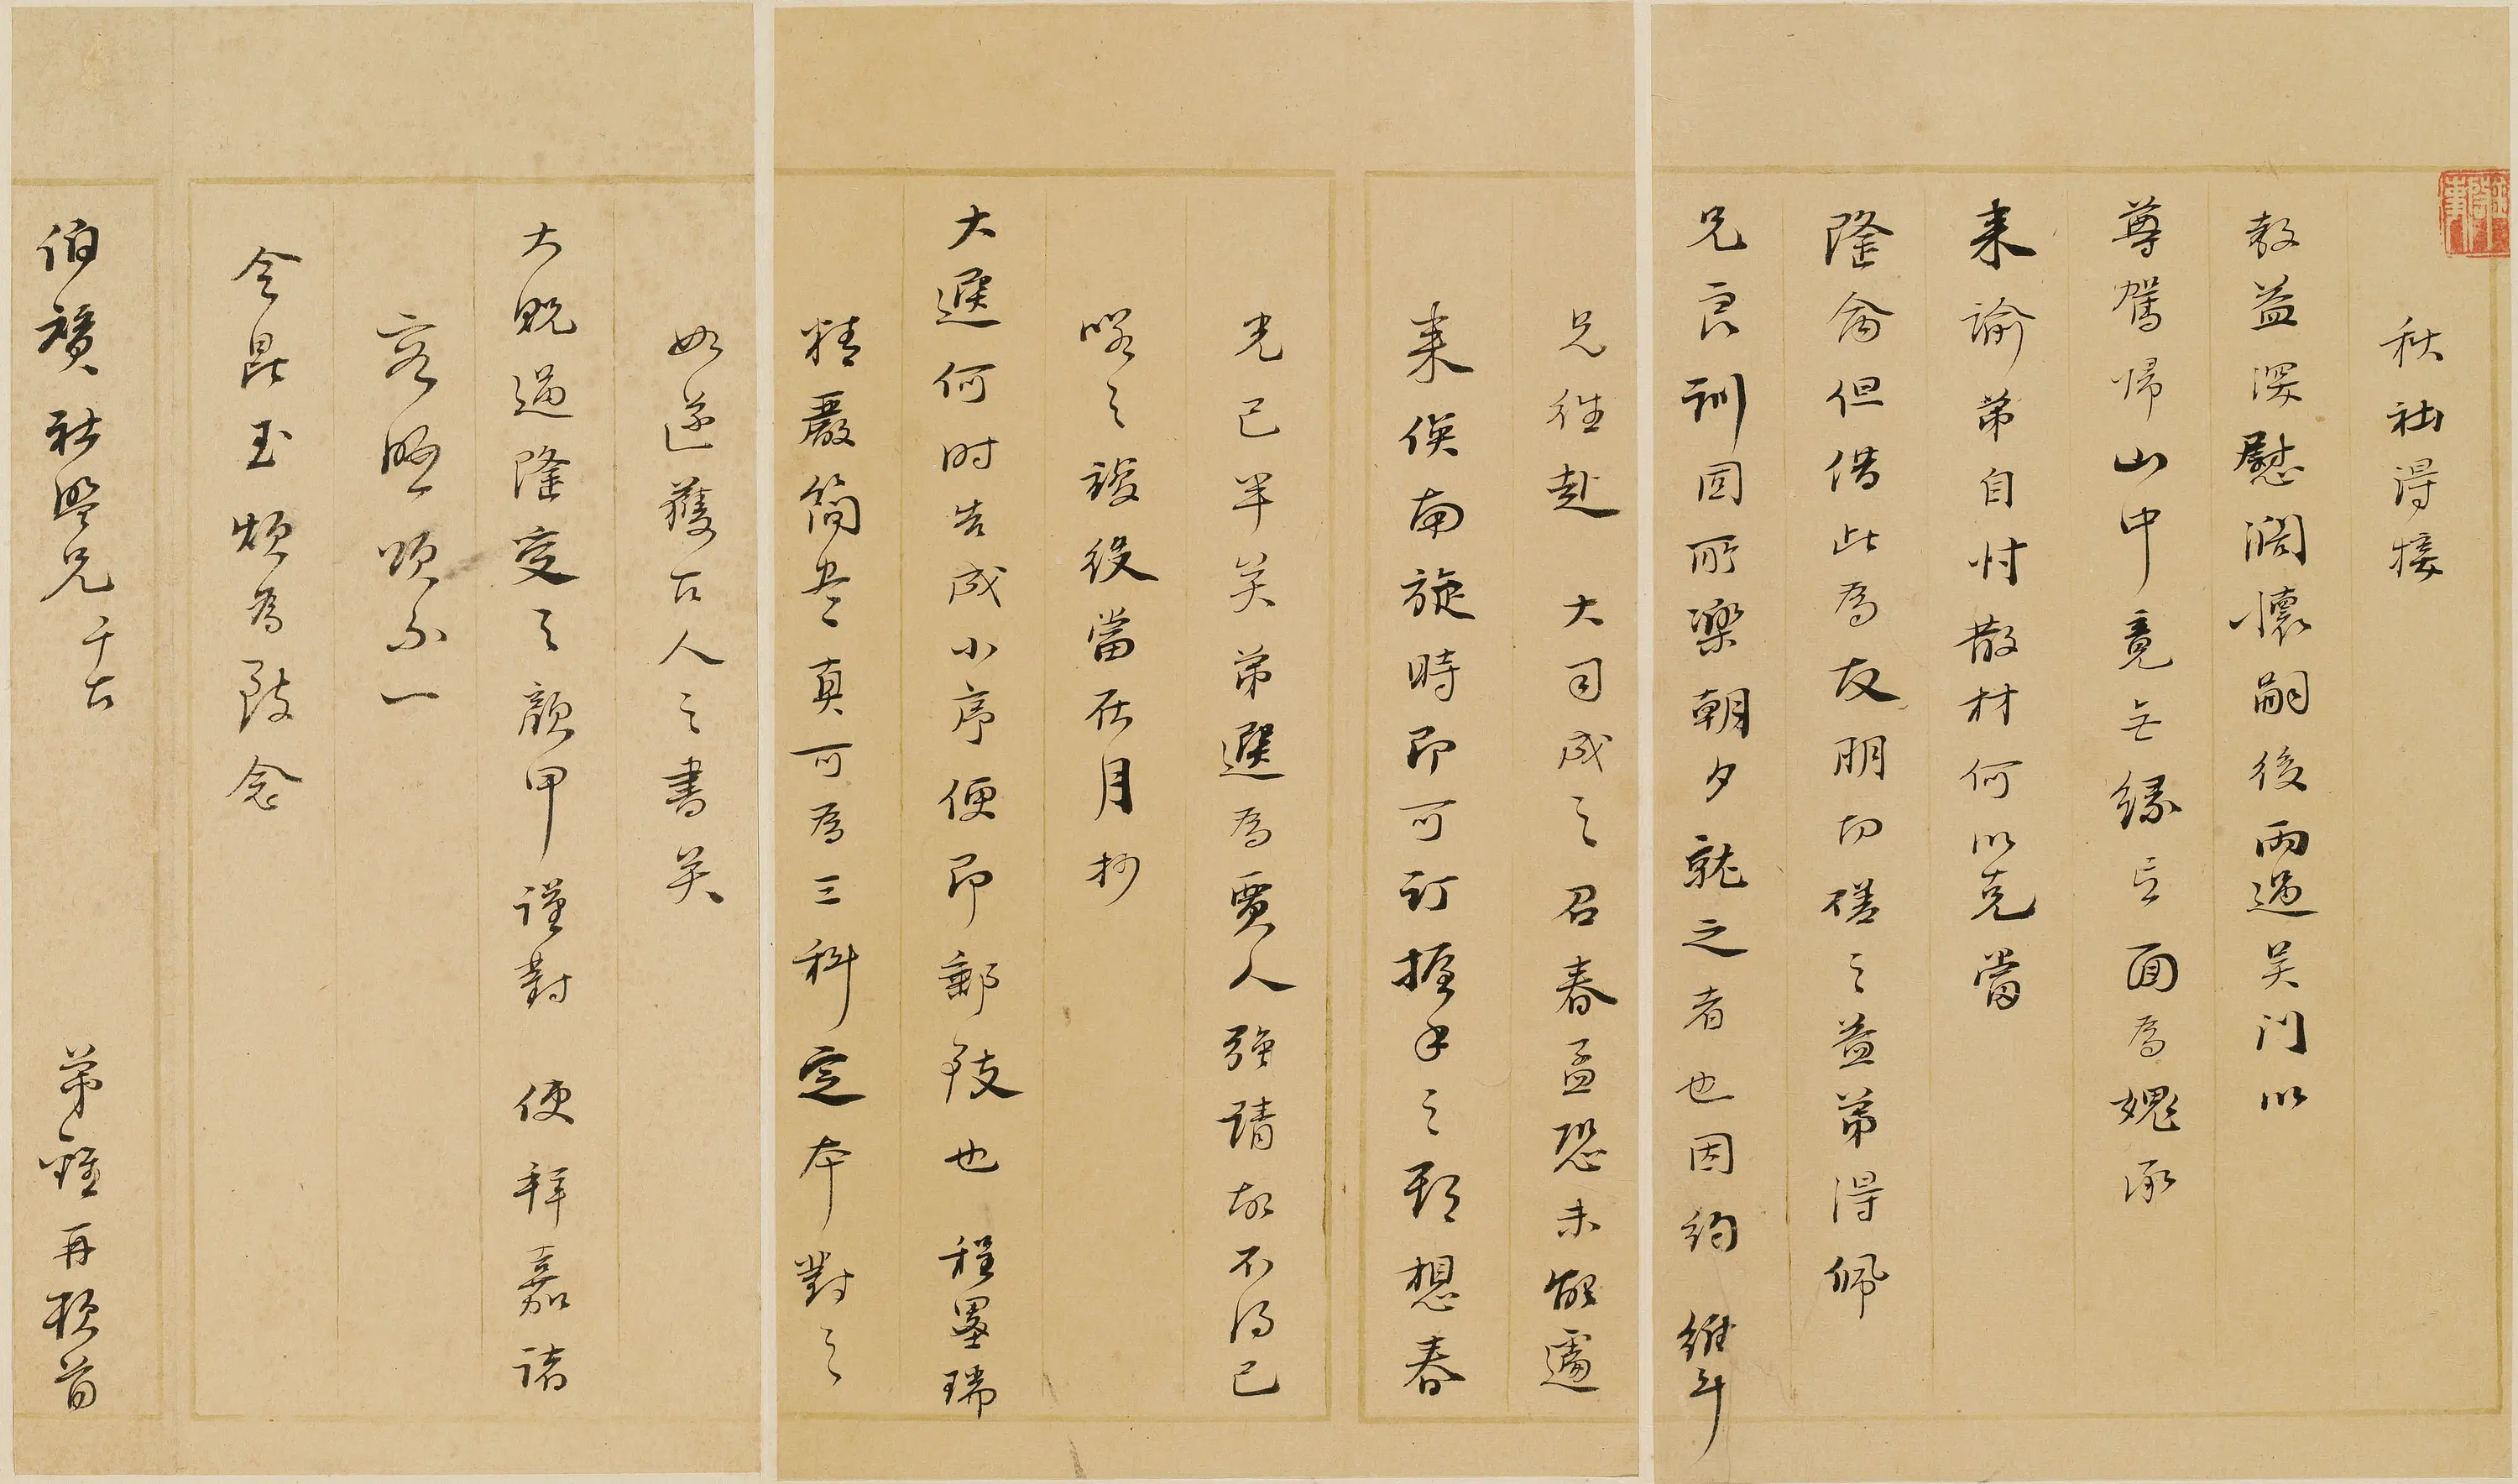 秋社得接
教益深慰濶懷嗣後兩過吴门以
尊駕歸山中竟無緣一面為媿承
来諭弟自忖散材何以克當
隆侖但借此為友朋切磋之益弟得佩
兄良訓固所樂朝夕就之者也因約 維斗
兄往赴 大司成之召春孟恐未能遽
来俟南旋時即可訂握手之期想春
光已半矣弟選為賈人強請故不得已
喏之竣役當在月杪
大選何时告成小序便即郵致也 程墨瑞
精嚴簡妙真可為三科定本對之
如遂獲古人之書矣
大貺過隆受之顔甲謹對 使拜嘉諸
容晤頌不一
令昆玉煩為致念
伯 社盟兄 千古
弟 再頓首